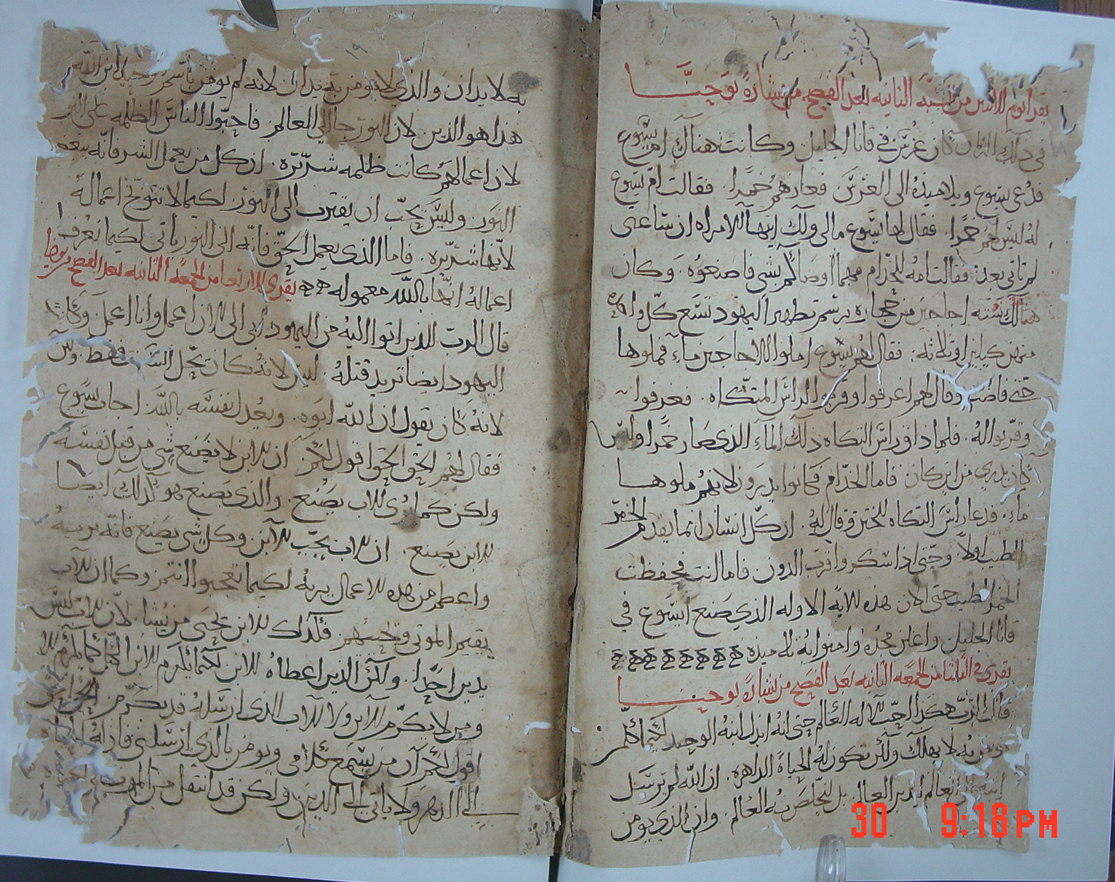 يقرا يوم الاثنين من الجمعه الثانيه بعد الفصح من بشارة يوحنا
في ذلك الزمان كان عرس في قانا الجليل وكانت هناك ام يسوع
فدعي يسوع وتلاميذه الى العرس فعازهم خمرا. فقالت ام يسوع
له ليس لهم خمرا. فقال لها يسوع مالي ولك ايتها الامراه ان ساعتى
لم تاتى بعد. فقالت امه للخدام مهما اوصاكم بشى فاصنعوه. وكان
هنالك سته اجاجين من حجاره برسم تطهير اليهود تسع كل واحده
منهن كيلين او ثلاثه. فقال لهم يسوع املوا الاجاجين ماء فملوها
حتى فاضت وقال لهم اغرفوا وقربوا لراس المتكاه. فغرفوا
وقربوا له. فلما ذاق راس التكاه ذلك الماء الذى صار خمرا وليس
كان يدرى من اين كان. فاما الخدام فكانوا يدرون لانهم ملوها
ماء. فدعا راس التكاه للختن وقال له. ان كل انسان انما يقدم الخمر
الطيب اولا وحتى اذا سكروا قرب الدون. فاما انت فحفظت
الخمر الطيب حتى الان هذه الايه الاوله الذى صنع ايسوع في
قانا الجليل واعلن مجده وامنوا به تلاميذه
يقرى في الثلثا من الجمعه الثانيه بعد الفصح من بشارة يوحنا
قال الرب هكذا احب الله العالم حتى انه ابذل ابنه الوحيد لكيما كلمن
يومن به لا يهلك ولكن تكون له الحياة الداهره. ان الله لم يرسل
ابنه الى العالم ليدين العالم بل ليخلص به العالم. وان الذى يومن
به لا يدان والذى لا يومن به يدان لانه لم يومن باسم وحيد ابن الله
هذا هو الدين لان النور جا الى العالم. فاحبوا الناس الظلمه على النور
لان اعمالهم كانت ظلمه شريره. ان كل من يعمل الشر فانه يبغض
النور. وليس يحب ان يقترب الى النور لكيما لا تتوبخ اعماله
لانها شريره. فاما الذى يعمل الحق فانه الى النور ياتى لكيما تعرف
اعماله انها بالله معموله يقرى الاربعا من الجمعه الثانيه بعد الفصح يوحنا
قال الرب للذين اتوا اليه من اليهود ابى الى الان اعمل وانا اعمل وكان
اليهود ايضا تريد قتله. ليس لانه كان يحل السبت فقط ولكن
لانه كان يقول ان الله ابوه. ويعدل نفسه بالله. اجاب يسوع
فقال لهم الحق الحق اقول لكم ان الابن لا يصنع شى من قبل نفسه
ولكن كما يرى الاب يصنع. والذى يصنع هو كذلك ايضا
الابن يصنع. ان الاب يحب الابن وكل شى يصنع فانه يريه
واعظم من هذه الاعمال يريه لكيما تعجبوا انتم وكما ان الاب
يقيم الموتى ويحييهم فكذلك الابن يحيى من يشا. لان الاب ليس
يدين احدا. ولكن الدين اعطاه للابن لكيما يكرم الابن الكل كما يكرم الاب
ومن لا يكرم الابن ولا للاب الذى ارسله قد يكرم الحق الحق
اقول لكم ان من يسمع كلامى ويومن بالذى ارسلنى فان له الحياه
الى الدهر ولا ياتى الى الدين ولكن قد انتقل من الموت الى الحياه
30 9:18PM